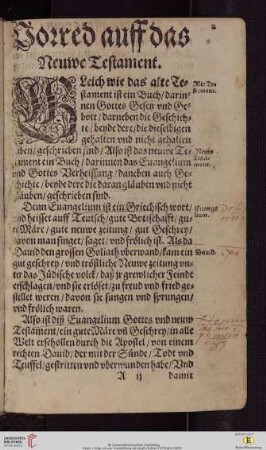 Vorred auff das
Neuwe Testament.
GLeich wie das alte Te-
stament ist ein Buch/ darin-
nen Gottes Gesetz vnd Ge-
bott/ darneben die Geschich-
te/ beyde dere/ die dieselbigen
gehalten vnd nicht gehalten
haben/ geschrieben sind/ Also ist das neuwe Te-
stament ein Buch/ darinnen das Euangelium
vnd Gottes Verheissung/ daneben auch Ge-
schichte/ beyde dere die daran glauben vnd nicht
glauben/ geschrieben sind.
Dann Euangelium ist ein Griechisch wort/
vnd heisset auff Teutsch/ gute Bottschafft/ gu-
te Märe/ gute neuwe zeitung/ gut Geschrey/
davon man singet/ saget/ vnd frölich ist. Als da
Dauid den grossen Goliath vberwand/ kam ein
gut geschrey/ vnd tröstliche Neuwe zeitung vn-
ter das Jüdische volck/ daß jr grewlicher Feindt
erschlagen/ vnd sie erlöset/ zu freud vnd fried ge-
stellet weren/ davon sie sungen vnd sprungen/
vnd frölich waren.
Also ist diß Euangelium Gottes vnd neuw
Testament/ ein gute Märe vñ Geschrey/ in alle
Welt erschollen durch die Apostel/ von einem
rechten Dauid/ der mit der Sünde/ Todt vnd
Teuffel/ gestritten vnd vberwunden habe/ Vnd
A ij damit
Alt Te-
stament.
Neuw
Testa-
ment.
Euange-
lium.
Dauid.